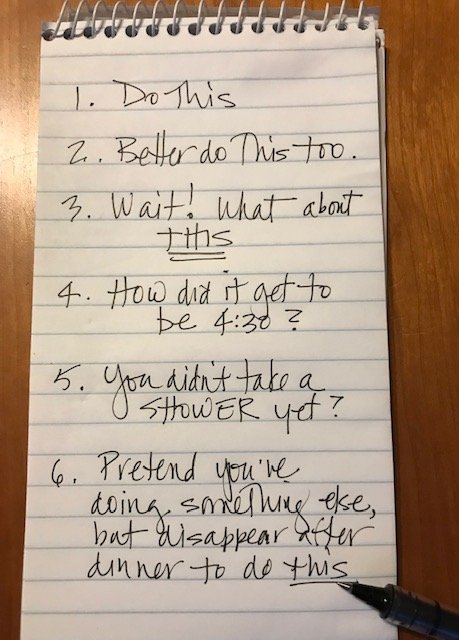 1. Do This
2. Better do This too.
3. Wait! What about
THIS
4. How did it get to
be 4:30?
5. You didn't take a
SHOWER yet?
6. Pretend you're
doing something else,
but disappear after
dinner to do this